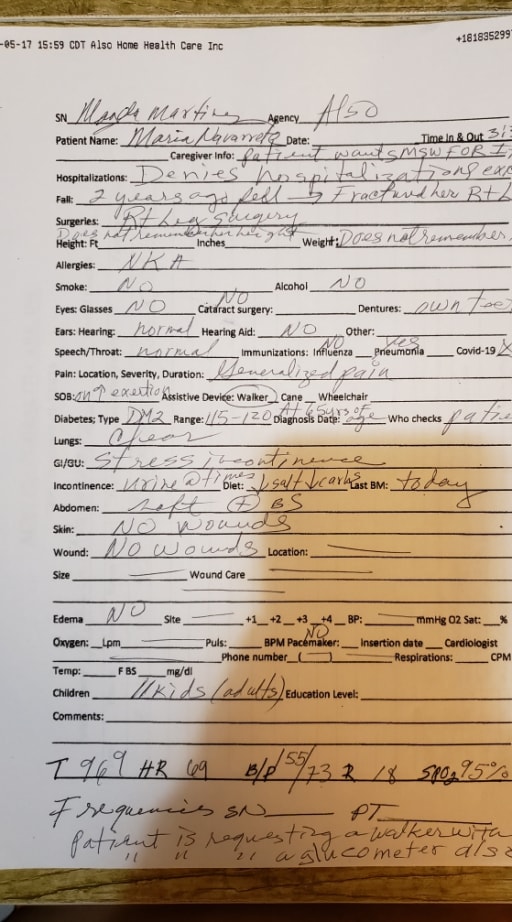 -05-17 15:59 CDT Also Home Health Care Inc +1818352997
SN Magda Martinez Agency Also
Patient Name: Maria Navarrete Date: Time In & Out 3:
Caregiver Info: patient wants MSW FOR
Hospitalizations: Denies hospitalizations exc
Fall: 2 years ago fell → Fractured her Rt L
Surgeries: Rt Leg surgery
Does not remember her height
Height: Ft Inches Weight: Does not remember
Allergies: NKA
Smoke: NO Alcohol NO
Eyes: Glasses NO Cataract surgery: NO Dentures: own tee
Ears: Hearing: normal Hearing Aid: NO Other:
Speech/Throat: normal Immunizations: Influenza NO Pneumonia yes Covid-19 X
Pain: Location, Severity, Duration: Generalized pain
SOB: on exertion Assistive Device: Walker Cane Wheelchair
Diabetes; Type DM2 Range: 115-120 Diagnosis Date: At 65 yrs of age Who checks patie
Lungs: Clear
GI/GU: Stress incontinence
Incontinence: urine @ times Diet: ↓salt ↓carbs Last BM: today
Abdomen: soft (+) BS
Skin: NO wounds
Wound: NO wounds Location:
Size Wound Care
Edema NO Site +1 +2 +3 +4 BP: mmHg O2 Sat: %
Oxygen: Lpm Puls: BPM Pacemaker: NO Insertion date Cardiologist
Phone number ( ) Respirations: CPM
Temp: F BS mg/dl
Children 11 kids (adults) Education Level:
Comments:
T 96.9 HR 69 B/P 155/73 R 18 SPO2 95%
Frequencies SN PT
Patient is requesting a walker with a
" " " a glucometer also